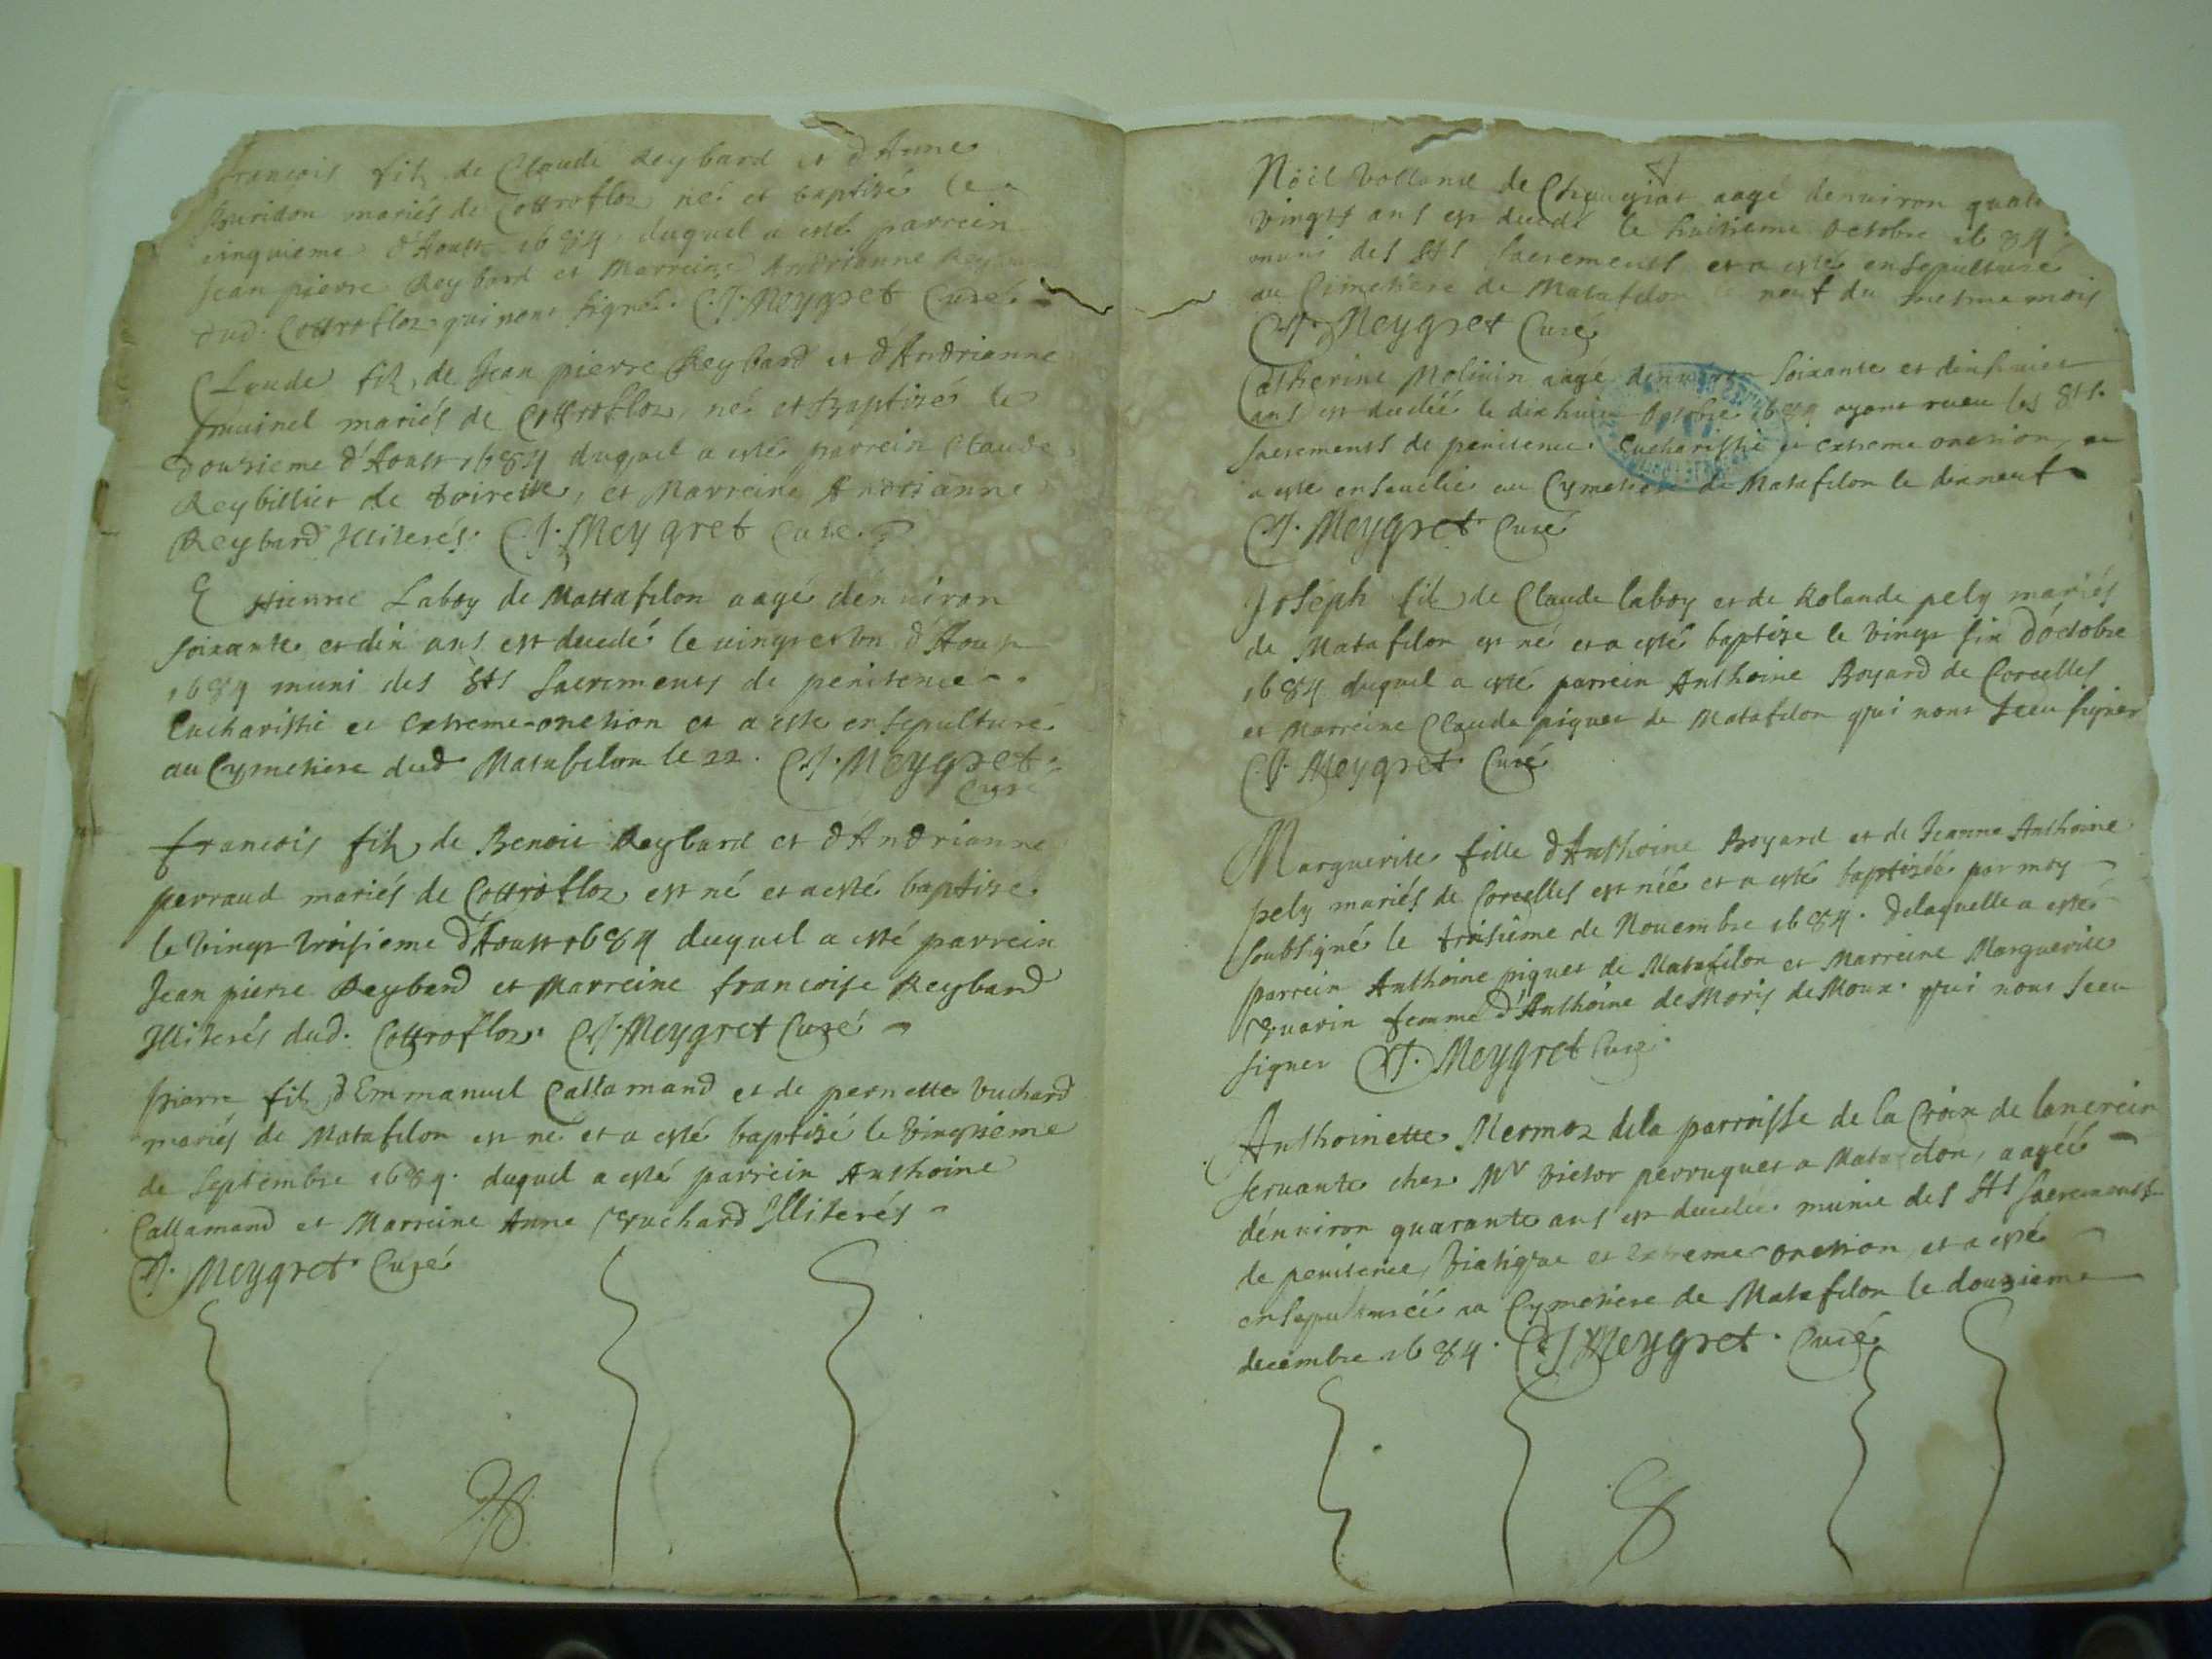 francois filz de Claude Reybard et d'Anne
Buridon mariés de Cottrofloz né et baptizé le
cinquieme d'Aoust 1684 duquel a esté parrein
Jean pierre Reybard et Marreine Andrianne
dud. Cottrofloz qui n'ont signé. C.J. Meygret Curé
Claude filz de Jean pierre Reybard et d'Andrianne
mariés de Cottrofloz, né et baptizé le
douzieme d'Aoust 1684 duquel a esté parrein Claude
Reybillier de toirette, et Marreine Andrianne
Reybard Illiterés. C.J. Meygret Curé.
Estienne Laboy de Mattafelon aagé d'enuiron
soixante et dix ans est decedé le vingt et un d'Aoust
1684 muni des Sts Sacrements de penitence
Eucharistie et extreme-onction et a esté ensepulturé
au Cymetiere dud Matafelon le 22. C.J. Meygret
Curé
francois filz de Benoit Reybard et d'Andrianne
perraud mariés de Cottrofloz est né et a esté baptizé
le vingt troisieme d'Aoust 1684 duquel a esté parrein
Jean pierre Reybard et Marreine francoise Reybard
Illiterés dud. Cottrofloz. C.J. Meygret Curé
pierre filz d'Emmanuel Callamand et de pernette vuchard
mariés de Matafelon est né et a esté baptizé le vingtieme
de Septembre 1684. duquel a esté parrein Anthoine
Callamand et Marreine Anne vuchard Illiterés
C.J. Meygret Curé
Nöel volland de aagé denuiron quatre
vingts ans est decedé le huitieme octobre 1684
muni des Sts Sacrements et a esté ensepulturé
au Cimetiere de Matafelon le neuf du mesme mois
C.J. Meygret Curé
Catherine Molinin aagé denuiron soixante et dixhuict
ans est decedée le dixhuict octobre 1684 ayant receu les Sts.
sacrements de penitence Eucharistie et extreme onction, et
a esté enseuelie au Cymetiere de Matafelon le dixneuf
C.J. Meygret Curé
Joseph filz de Claude laboy et de Rolande pely mariés
de Matafelon est né et a esté baptize le vingt six d'octobre
1684 duquel a esté parrein Anthoine Boyard de Corcelles
et Marreine Claude piquet de Matafelon qui n'ont sceu signer
C.J. Meygret Curé
Marguerite fille d'Anthoine Boyard et de Jeanne Anthoine
pely mariés de Corcelles est née et a esté baptizée par moy
soubsigné le troisième de Nouembre 1684. delaquelle a esté
parrein Anthoine piquet de Matafelon et Marreine Marguerite
Guarin femme d'Anthoine de Moris de Moux. qui n'ont sceu
signer C.J. Meygret Curé.
Anthoinette Mermoz dela parroisse de la Croix de lancrein
seruante chez Mr victor perruquet a Matafelon, aagée
dénuiron quarante ans est decedée munie des Sts sacrements
de penitence, viatique et extreme onction, et a esté
ensepulturéé au Cymetiere de Matafelon le douzieme
decembre 1684. C.J. Meygret. Curé